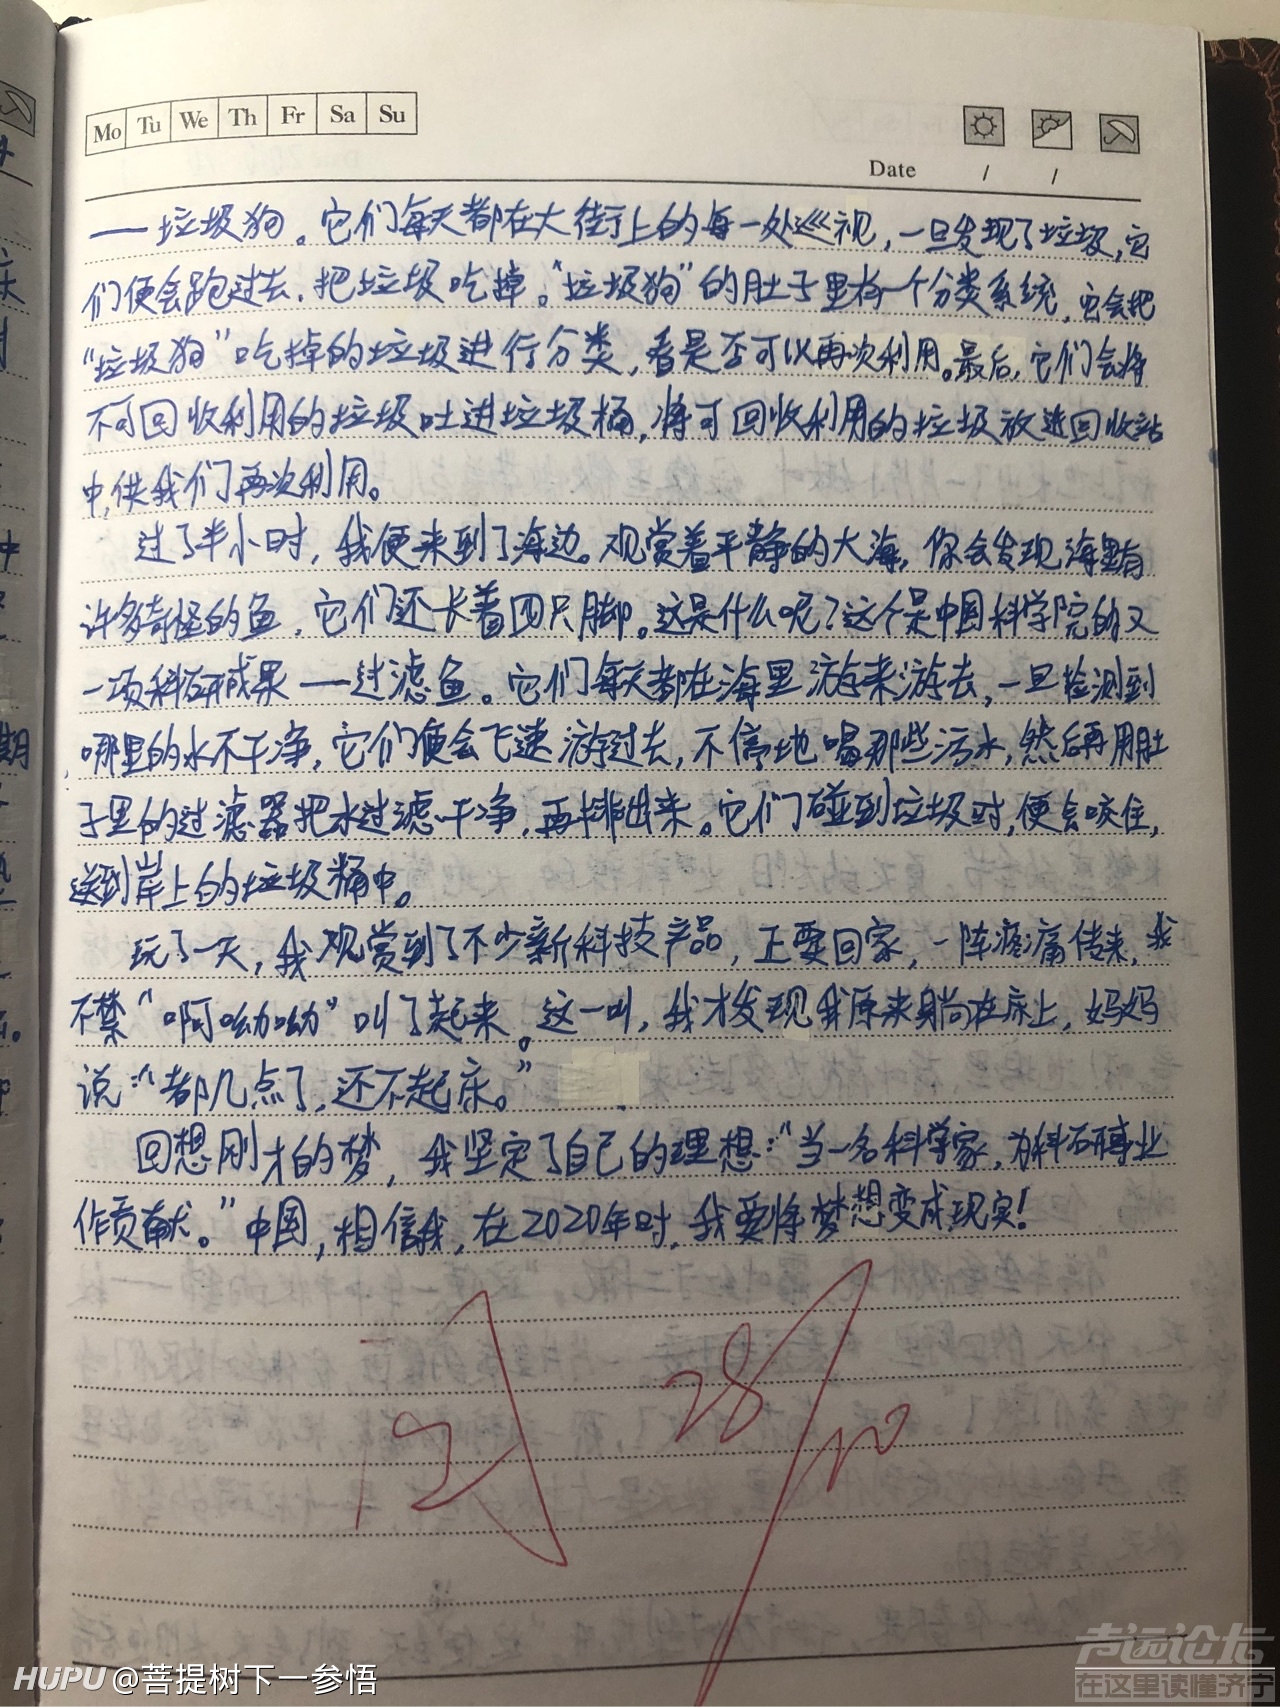 Mo Tu We Th Fr Sa Su
Date / /
——垃圾狗。它们每天都在大街上的每一处巡视，一旦发现了垃圾，它
们便会跑过去，把垃圾吃掉。“垃圾狗”的肚子里有一个分类系统，它会把
“垃圾狗”吃掉的垃圾进行分类，看是否可以再次利用。最后，它们会将
不可回收利用的垃圾吐进垃圾桶，将可回收利用的垃圾放进回收站
中，供我们再次利用。
过了半小时，我便来到了海边。观赏着平静的大海，你会发现海里有
许多奇怪的鱼，它们还长着四只脚。这是什么呢？这个是中国科学院的又
一项科研成果——过滤鱼。它们每天都在海里游来游去，一旦检测到
哪里的水不干净，它们便会飞速游过去，不停地喝那些污水，然后再用肚
子里的过滤器把水过滤干净，再排出来。它们碰到垃圾时，便会咬住，
送到岸上的垃圾桶中。
玩了一天，我观赏到了不少新科技产品，正要回家，一阵疼痛传来，我
不禁“啊呦呦”叫了起来。这一叫，我才发现我原来躺在床上，妈妈
说：“都几点了，还不起床。”
回想刚才的梦，我坚定了自己的理想：“当一名科学家，为科研事业
作贡献。”中国，相信我，在2020年时，我要将梦想变成现实！
28/10
HUPU @菩提树下一参悟
声远论坛
在这里读懂济宁